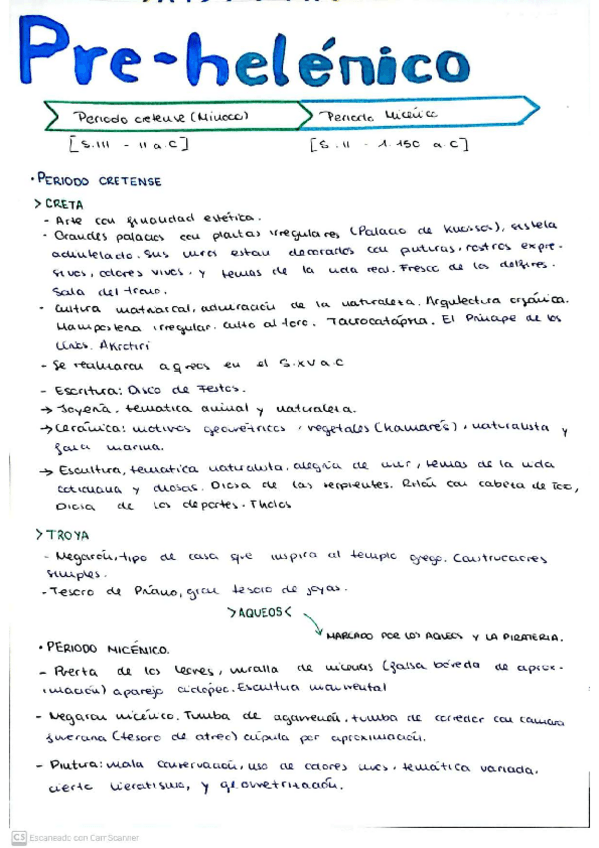 Pre-helénico
Periodo cretense (Minoco) Periodo Micénico
[S.III - II a.C] [S.II - 1.150 a.C]
· PERIODO CRETENSE
> CRETA
- Arte con finalidad estética.
- Grandes palacios con plantas irregulares (Palacio de Knossos), sistela
adintelado. Sus muros estan decorados con pinturas, rostros expre-
sivos, colores vivos, y temas de la vida real. Fresco de los delfines.
Sala del trono.
· Cultura matriarcal, admiración de la naturaleza. Arquitectura orgánica.
Mampostería irregular. Culto al toro. Taurocatapsia. El Príncipe de los
Lirios. Akrotiri
- Se realizaron a grecos en el S.XV a.C
- Escritura: Disco de Festos.
→ Joyería, tematica animal y naturaleza.
→ Cerámica: motivos geométricos, vegetales (Kamarés), naturalista y
fauna marina.
→ Escultura, tematica naturalista, alegría de vivir, temas de la vida
cotidiana y diosas. Diosa de las serpientes. Ritón con cabeza de Toro,
Diosa de los deportes. Tholos
> TROYA
- Megarón, tipo de casa que inspira al templo griego. Construcciones
simples.
- Tesoro de Príamo, gran tesoro de joyas.
> AQUEOS <
MARCADO POR LOS AQUEOS Y LA PIRATERIA.
· PERIODO MICÉNICO.
- Puerta de los leones, muralla de micenas (falsa bóveda de aprox-
imación) aparejo ciclópeo. Escultura monumental
- Megaron micénico. Tumba de agamenón, tumba de corredor con cámara
funeraria (tesoro de atreo) cúpula por aproximación.
- Pintura: mala conservación, uso de colores vivos, temática variada,
cierto hieratismo, y geometrización.
CS Escaneado con CamScanner